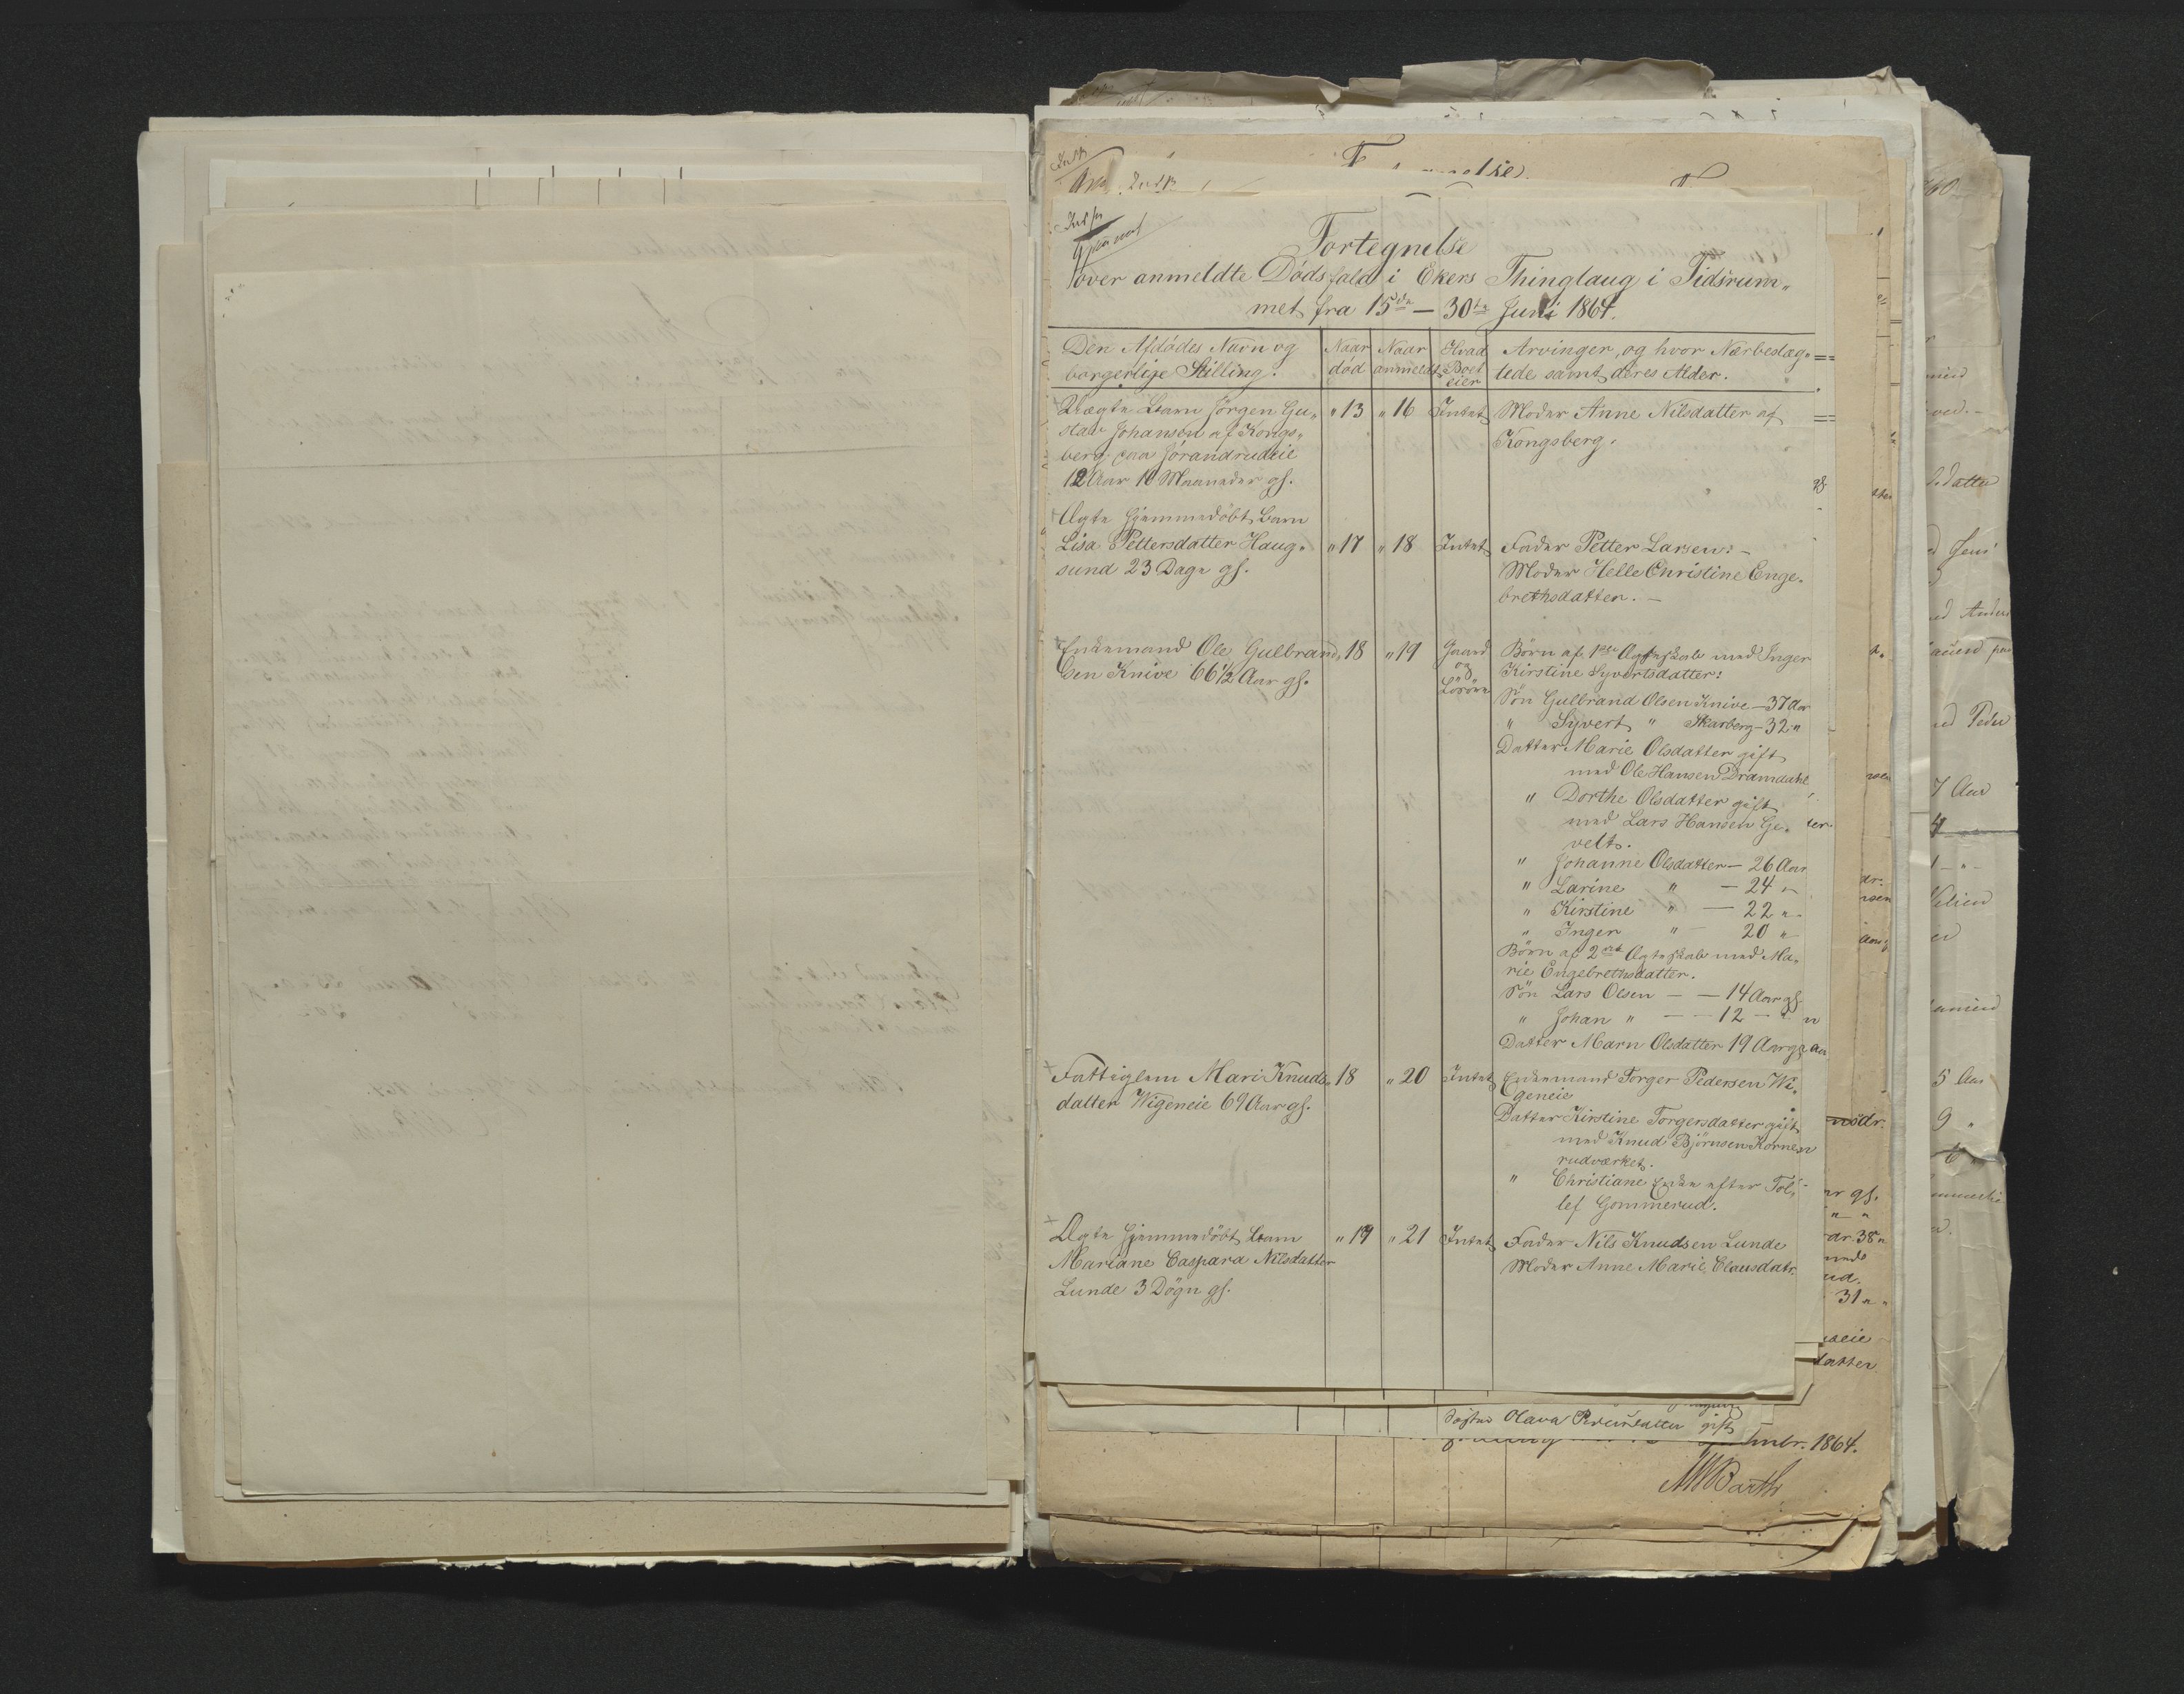 Fortegnelse
over anmeldte Dødsfald i Ekers Thinglaug i Tidsrum„
met fra 15de — 30te Juni 1864.
Den Afdødes Navn og
borgerlige Stilling.
Naar
død
Naar
anmeldt
Hvad
Boet
eier
Arvinger, og hvor Nærbeslæg„
tede samt deres Alder.
Uægte Barn Jörgen Gu„
stav Johansen af Kongs„
berg paa Jörandrudeie
12 Aar 10 Maaneder gl.
" 13
" 16
Intet
Moder Anne Nilsdatter af
Kongsberg.
Ægte hjemmedöbt Barn
Lisa Pettersdatter Haug„
sund 23 Dage gl.
" 17
" 18
Intet
Fader Petter Larsen. –
Moder Helle Christine Enge„
brethsdatter. –
Enkemand Ole Gulbrand
sen Knive 66 1/2 Aar gl.
" 18
" 19
Gaard
og
Lösöre
Börn af 1ste Ægteskab med Inger
Kirstine Syvertsdatter:
Sön Gulbrand Olsen Knive – 37 Aar
" Syvert " Skarberg – 32 "
Datter Marie Olsdatter gift
med Ole Hansen Dramdahl
" Dorthe Olsdatter gift
med Lars Hansen Ge„
velt.
" Johanne Olsdatter – 26 Aar
" Larine " – 24 "
" Kirstine " – 22 "
" Inger " – 20 "
Börn af 2det Ægteskab med Ma„
rie Engebrethsdatter.
Sön Lars Olsen – – 14 Aar gl.
" Johan " – – 12 – "
Datter Marn Olsdatter 19 Aar gl.
Fattiglem Mari Knuds„
datter Wigeneie 69 Aar gl.
18
" 20
Intet
Enkemand Torger Pedersen Wi„
geneie
Datter Kirstine Torgersdatter gift
med Knud Björnsen Korne„
rudværket.
" Christiane Enke efter Tol„
lef Gommerud.
Ægte hjemmedöbt Barn
Mariane Caspara Nilsdatter
Lunde 3 Dögn gl.
" 19
" 21
Intet
Fader Nils Knudsen Lunde
Moder Anne Marie Clausdatr.
Olava
gift
1864.
Barth